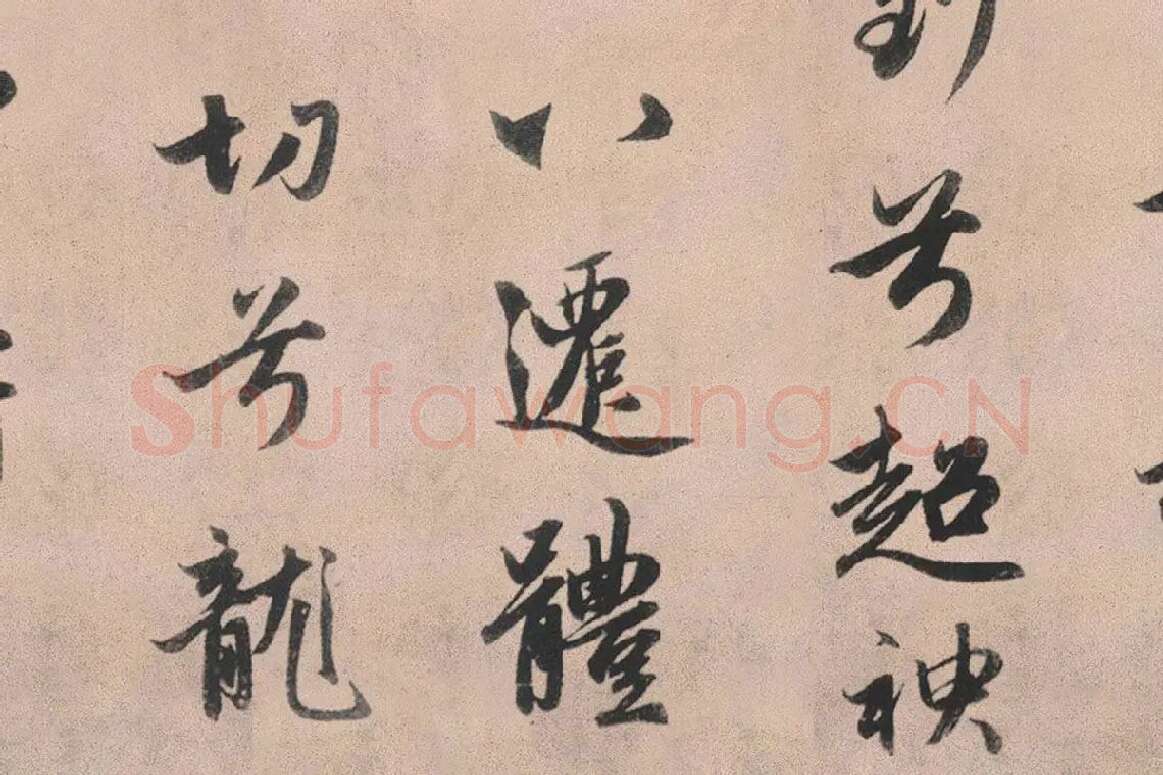 兮超
八遷體
切兮龍
Shufawang.CN